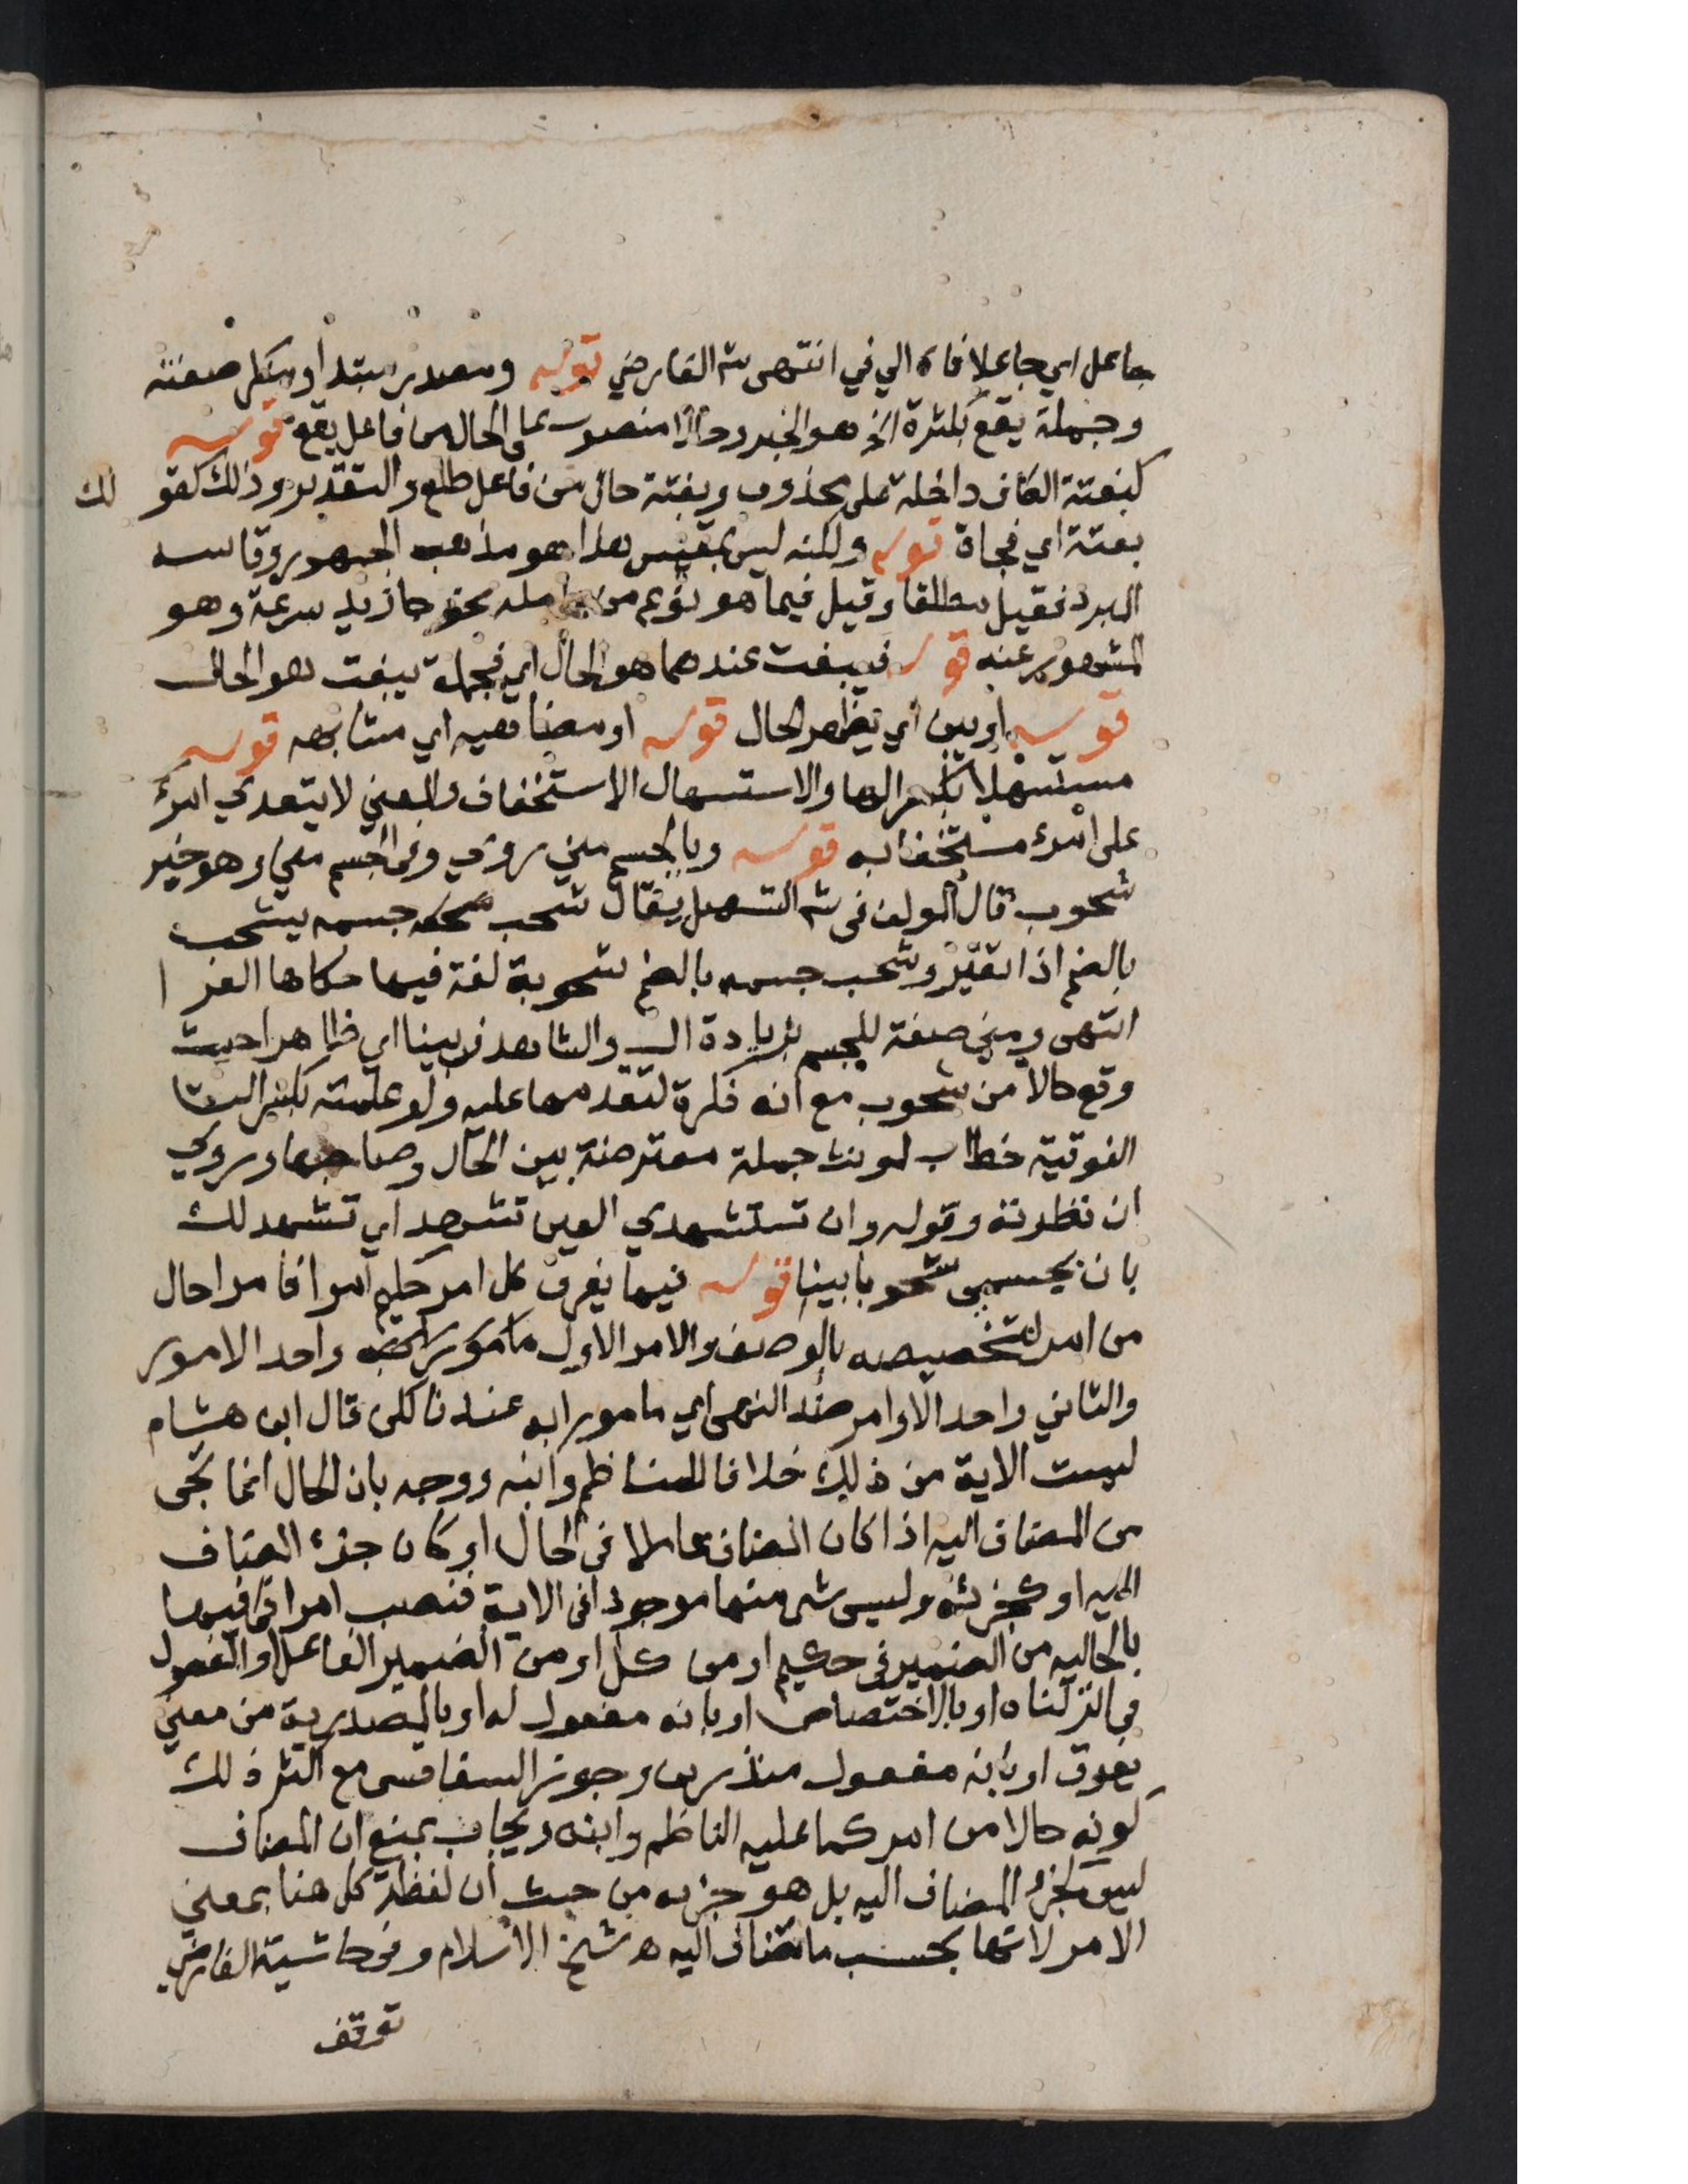 جاعل اي جاعلا فاه الي في انتهى ش الفارضي قوله ومصدر مبتدأ ومنكر صفته
وجملة يقع بكثرة الخ هو الخبر وحالا منصوب على الحال من فاعل يقع قوله
كبغتة الكاف داخلة على محذوف وبغتة حال من فاعل طلع والتقدير وذلك كقو لك
بغتة اي فجاة قوله ولكنه ليس بمقيس هذا هو مذهب الجمهور وقاسه
المبرد فقيل مطلقا وقيل فيما هو نوع من عامله نحو جا زيد سرعة وهو
المشهور عنه قوله فيبغت عندهما هو الحال اي فجملة يبغت هو الحال
قوله او يبن اي يظهر الحال قوله او مضاهيه اي مشابهه قوله
مستسهلا بكسر الها والاستسهال الاستخفاف والمعنى لا يتعدي امرء
على امرء مستخفا به قوله وبالجسم مني روي وفي الجسم مني وهو خبر
شحوب قال المولف في ش التسهيل يقال شحب جسمه يشحب
بالضم اذا تغير وشحب جسمه بالضم شحوبة لغة فيها حكاها الفرا
انتهى ومني صفة للجسم بزيادة ال والشاهد في بينا اي ظاهرا حيث
وقع حالا من شحوب مع انه نكرة لتقدمها عليه ولو علمته بكسر التا
الفوقية خطاب لمونث جملة معترضة بين الحال وصاحبها وروي
ان نظرته وقوله وان تستشهدي العين تشهد اي تشهد لك
بان بجسمي شحوبا بينا قوله فيها يفرق كل امر حكيم امرا فامرا حال
من امر لتخصيصه بالوصف والامر الاول مامور به واحد الامور
والثاني واحد الاوامر ضد النهي اي مامورا به عندنا لكن قال ابن هشام
ليست الاية من ذلك خلافا للناظم وابنه ووجه بان الحال انما تجي
من المضاف اليه اذا كان المضاف عاملا في الحال او كان جزء المضاف
اليه او كجزئه وليس شي منها موجودا في الاية فنصب امرا فيها
بالحاليه من الضمير في حكيم او من كل او من الضمير الفاعل او المفعول
في انزلناه او بالاختصاص او بانه مفعول له او بالمصدرية من معنى
يفرق او بانه مفعول منذرين وجوز السفاقسي مع اكثر ذلك
كونه حالا من امر كما عليه الناظم وابنه ويجاب بمنع ان المضاف
ليس كجزء المضاف اليه بل هو جزءه من حيث ان لفظة كل هنا بمعنى
الامر لانها بحسب ما تضاف اليه ه شيخ الاسلام وفي حاشية الفارضي
توقف